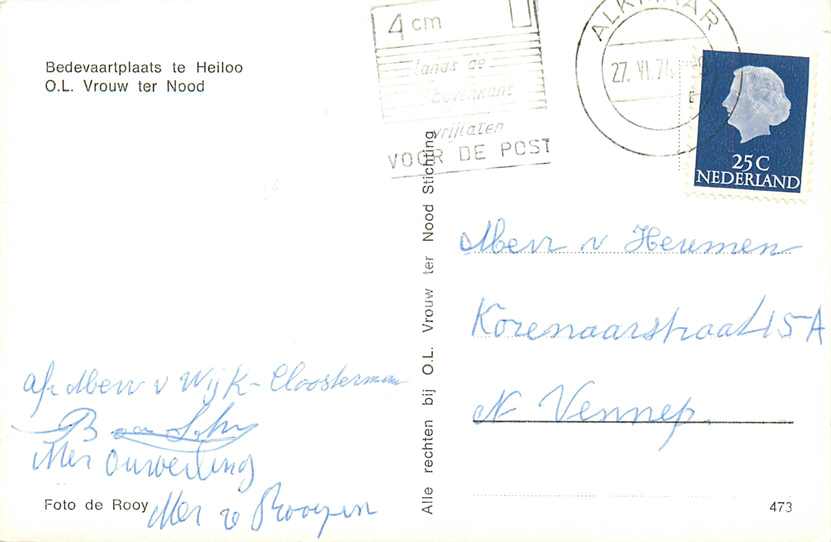 Bedevaartplaats te Heiloo
O.L. Vrouw ter Nood
4 cm
langs de
bovenkant
vrijlaten
VOOR DE POST
ALKMAAR
27. VI. 74
25C
NEDERLAND
Mevr v Heumen
Korenaarstraat 15A
N Vennep.
afz Mevr v Wijk-Cloosterman
Mevr v Rooyen
Foto de Rooy
Alle rechten bij O.L. Vrouw ter Nood Stichting
473